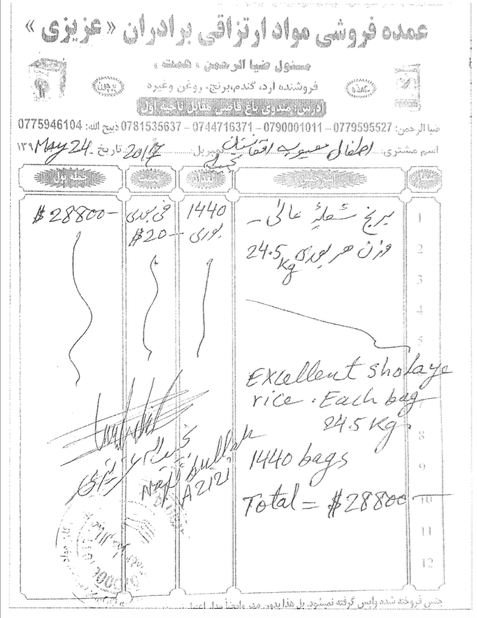 عمده فروشی مواد ارتزاقی برادران «عزیزی»
مسئول ضیا الرحمن «همت»
فروشنده آرد، گندم، برنج، روغن وغیره
آدرس: مندوی باغ قاضی مقابل تاخت اول
ضیا الرحمن: 0779595527 – 0790001011 – 0744716371 – 0781535637 ذبیح الله: 0775946104
اسم مشتری: اطفال معیوب افغانستان موبریل تاریخ May 24 2017 /139
1 برنج شعلۀ عالی – 1440 بوری فی بوری $20 $28800 –
2 وزن هر بوری 24.5 kg
3
4
5
Excellent sholaye
rice. Each bag
24.5 kg.
8
1440 bags
9
Total = $28800 10
11
12
Najibullah
Azizi
جنس فروخته شده واپس گرفته نمیشود.